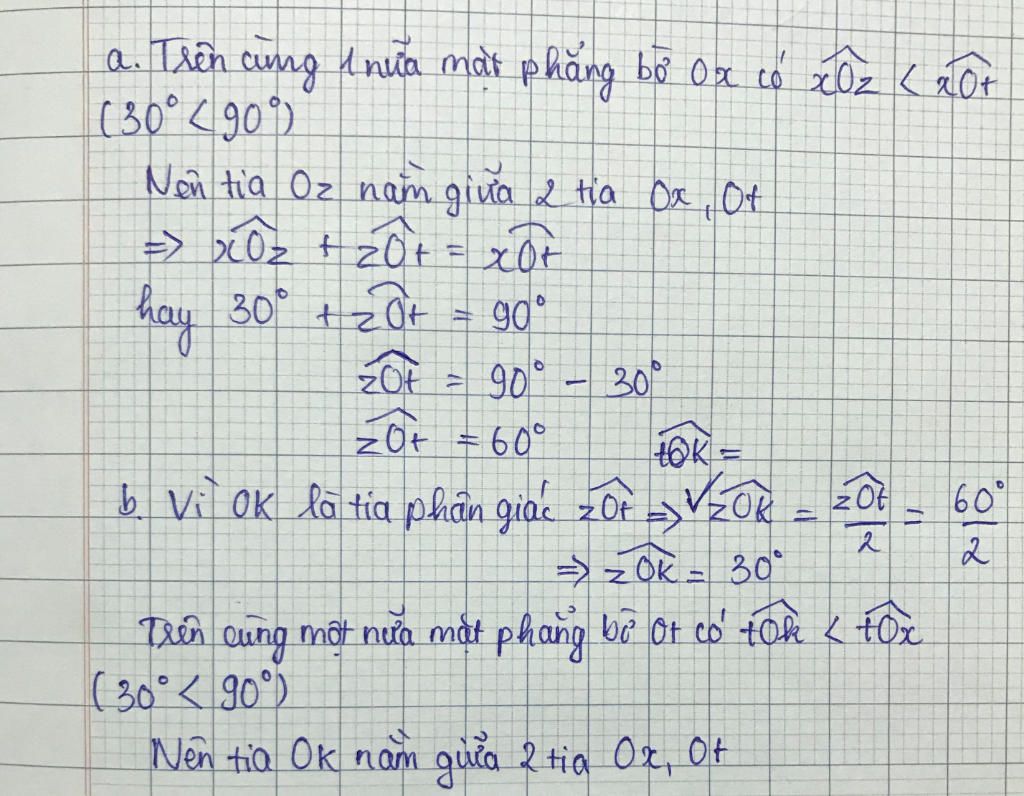 a. Trên cùng 1 nửa mặt phẳng bờ Ox có xOz < xOt
(30° < 90°)
Nên tia Oz nằm giữa 2 tia Ox, Ot
=> xOz + zOt = xOt
hay 30° + zOt = 90°
zOt = 90° - 30°
zOt = 60°
tOK =
b. Vì OK là tia phân giác zOt => √zOK = zOt/2 = 60°/2
=> zOK = 30°
Trên cùng một nửa mặt phẳng bờ Ot có tOk < tOx
(30° < 90°)
Nên tia OK nằm giữa 2 tia Ox, Ot